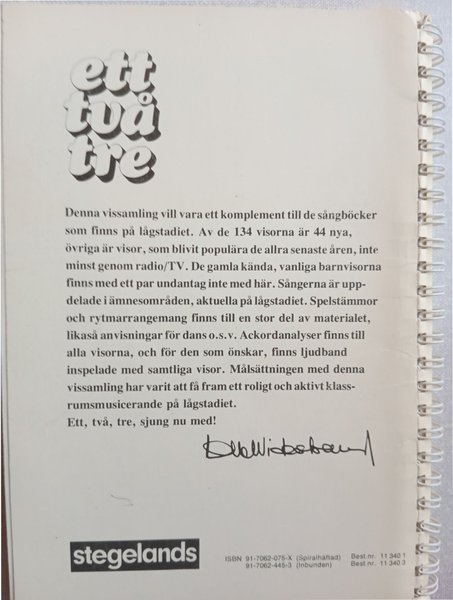 ett
två
tre
Denna vissamling vill vara ett komplement till de sångböcker
som finns på lågstadiet. Av de 134 visorna är 44 nya,
övriga är visor, som blivit populära de allra senaste åren, inte
minst genom radio/TV. De gamla kända, vanliga barnvisorna
finns med ett par undantag inte med här. Sångerna är upp-
delade i ämnesområden, aktuella på lågstadiet. Spelstämmor
och rytmarrangemang finns till en stor del av materialet,
likaså anvisningar för dans o.s.v. Ackordanalyser finns till
alla visorna, och för den som önskar, finns ljudband
inspelade med samtliga visor. Målsättningen med denna
vissamling har varit att få fram ett roligt och aktivt klass-
rumsmusicerande på lågstadiet.
Ett, två, tre, sjung nu med!
stegelands
ISBN 91-7062-075-X (Spiralhäftad) Best.nr. 11 340 1
91-7062-445-3 (Inbunden) Best.nr. 11 340 3